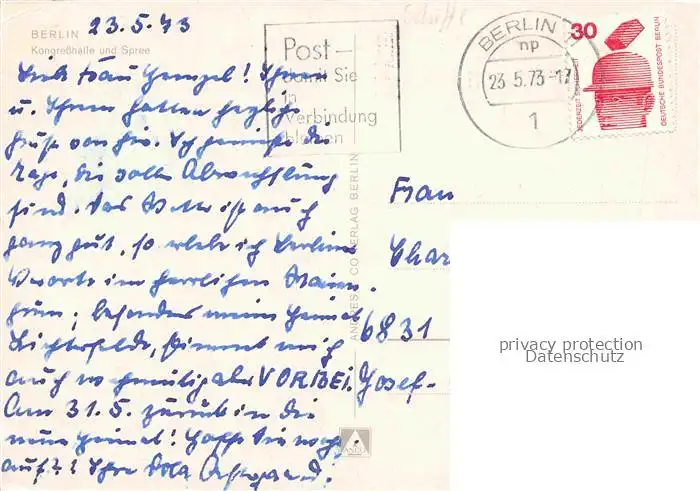 23.5.73
BERLIN
Kongreßhalle und Spree
Liebe Frau Hempel! Ihnen
u. Ihrem Gatten herzliche
Grüße von hier. Ich genieße die
Tage, die voller Abwechslung
sind. Das Wetter ist auch
ganz gut, so erlebe ich Berlins
Vororte im herrlichen Maien-
grün; besonders meine Heimat
Lichterfelde, stimmt mich
auch wehmütig aber VORBEI.
Am 31.5. zurück in die
neue Heimat! Hoffe Sie
auf?! Ihre
Post –
damit Sie
in
Verbindung
bleiben
BERLIN
np
23.5.73-17
1
30
JEDERZEIT SICHERHEIT
DEUTSCHE BUNDESPOST BERLIN
ANDRES + CO VERLAG BERLIN
Frau
Char
6831
Josef-
privacy protection
Datenschutz